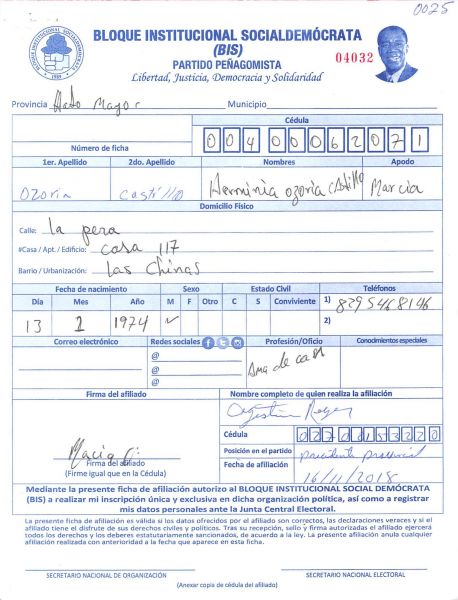 0025
BLOQUE INSTITUCIONAL SOCIALDEMÓCRATA
(BIS)
PARTIDO PEÑAGOMISTA
Libertad, Justicia, Democracia y Solidaridad
04032
Provincia Hato Mayor Municipio
Cédula
Número de ficha 00400062071
1er. Apellido 2do. Apellido Nombres Apodo
Ozoria Castillo Herminia ozoria Castillo Marcia
Domicilio Físico
Calle: La pera
#Casa / Apt. / Edificio: casa 117
Barrio / Urbanización: Las Chinas
Fecha de nacimiento Sexo Estado Civil Teléfonos
Día Mes Año M F Otro C S Conviviente 1) 8295468196
13 2 1974 2)
Correo electrónico Redes sociales Profesión/Oficio Conocimientos especiales
@
@
@
Ama de casa
Firma del afiliado Nombre completo de quien realiza la afiliación
Cédula
Posición en el partido presidente provincial
Fecha de afiliación 16/11/2018
Firma del afiliado
(Firme igual que en la Cédula)
Mediante la presente ficha de afiliación autorizo al BLOQUE INSTITUCIONAL SOCIAL DEMÓCRATA
(BIS) a realizar mi inscripción única y exclusiva en dicha organización política, así como a registrar
mis datos personales ante la Junta Central Electoral.
La presente ficha de afiliación es válida si los datos ofrecidos por el afiliado son correctos, las declaraciones veraces y si el
afiliado tiene el disfrute de sus derechos civiles y políticos. Tras su recepción, sello y firma autorizadas el afiliado ejercerá
todos los derechos y los deberes estatutariamente sancionados, de acuerdo a la ley. La presente afiliación anula cualquier
afiliación realizada con anterioridad a la fecha que aparece en esta ficha.
SECRETARIO NACIONAL DE ORGANIZACIÓN SECRETARIO NACIONAL ELECTORAL
(Anexar copia de cédula del afiliado)